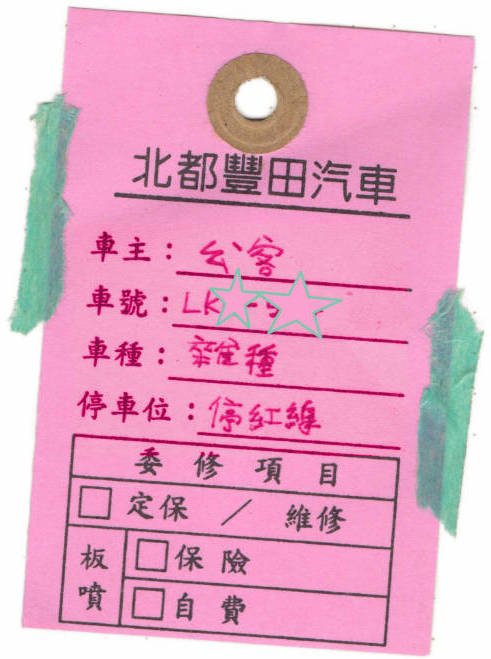 北都豐田汽車
車主：公客
車號：LK
車種：雜種
停車位：停紅線
委修項目
□定保／維修
板噴
□保險
□自費